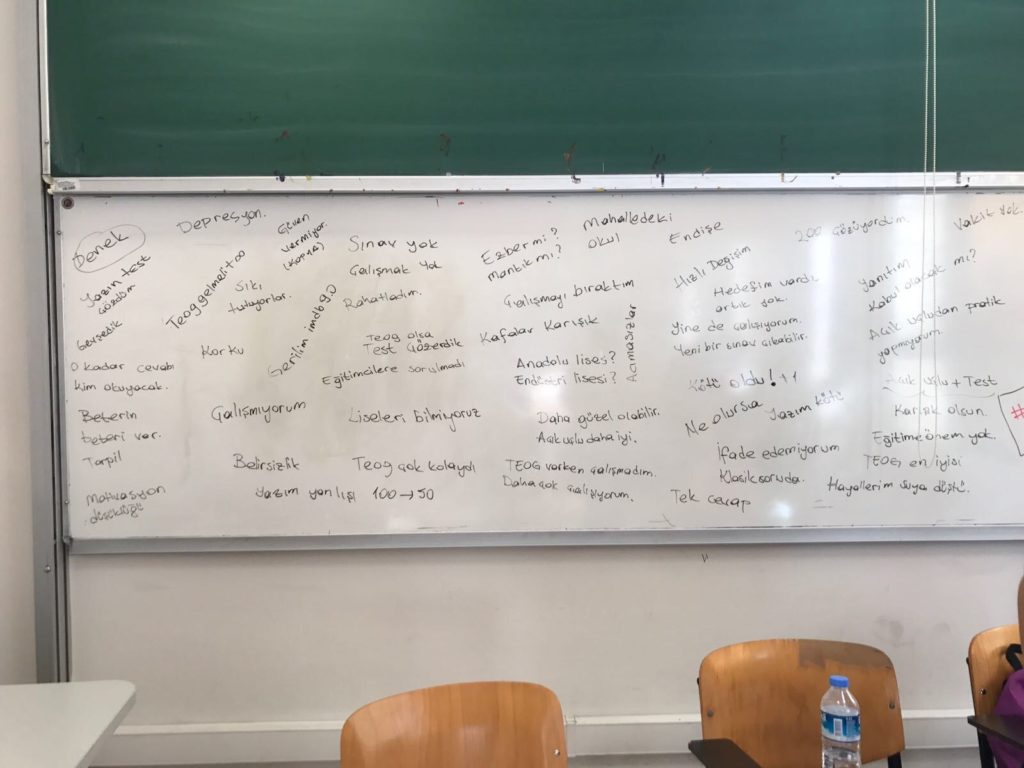 Denek
Yazın test
çözdüm
Gevşedik
O kadar cevabı
kim okuyacak.
Beterin
beteri var.
Torpil
Motivasyon
düşüklüğü
Depresyon.
Teog gelmeli +∞
Sıkı
tutuyorlar.
Korku
Çalışmıyorum
Belirsizlik
Yazım yanlışı
Güven
vermiyor.
(KOPYA)
Gerilim imdb 9.0
Sınav yok
Çalışmak yok
Rahatladım.
Teog olsa
Test Çözerdik
Eğitimcilere sorulmadı
Liseleri bilmiyoruz
Teog çok kolaydı
100→50
Ezber mi?
mantık mı?
Mahalledeki
okul
Çalışmayı bıraktım
Kafalar Karışık
Acımasızlar
Anadolu lisesi?
Endüstri lisesi?
Daha güzel olabilir.
Açık uçlu daha iyi.
TEOG varken çalışmadım.
Daha çok çalışıyorum.
Endişe
Hızlı Değişim
Hedefim vardı,
artık yok.
Yine de çalışıyorum.
Yeni bir sınav çıkabilir.
Kötü oldu!++
Ne olursa
Yazım kötü
İfade edemiyorum
Klasik soruda.
Tek cevap
200 çözüyordum.
Vakit Yok.
Yanıtım
Kabul olacak mı?
Açık uçludan pratik
yapmıyorum.
Açık uçlu + Test
Karışık olsun.
Eğitime önem yok.
TEOG en iyisi
Hayallerim suya düştü.
#